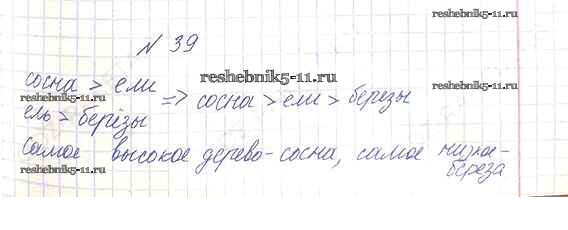 reshebnik5-11.ru
N 39
сосна > ели
reshebnik5-11.ru
=> сосна > ели > березы
reshebnik5-11.ru
ель > берёзы
Самое высокое дерево - сосна, самое низкое -
береза
reshebnik5-11.ru